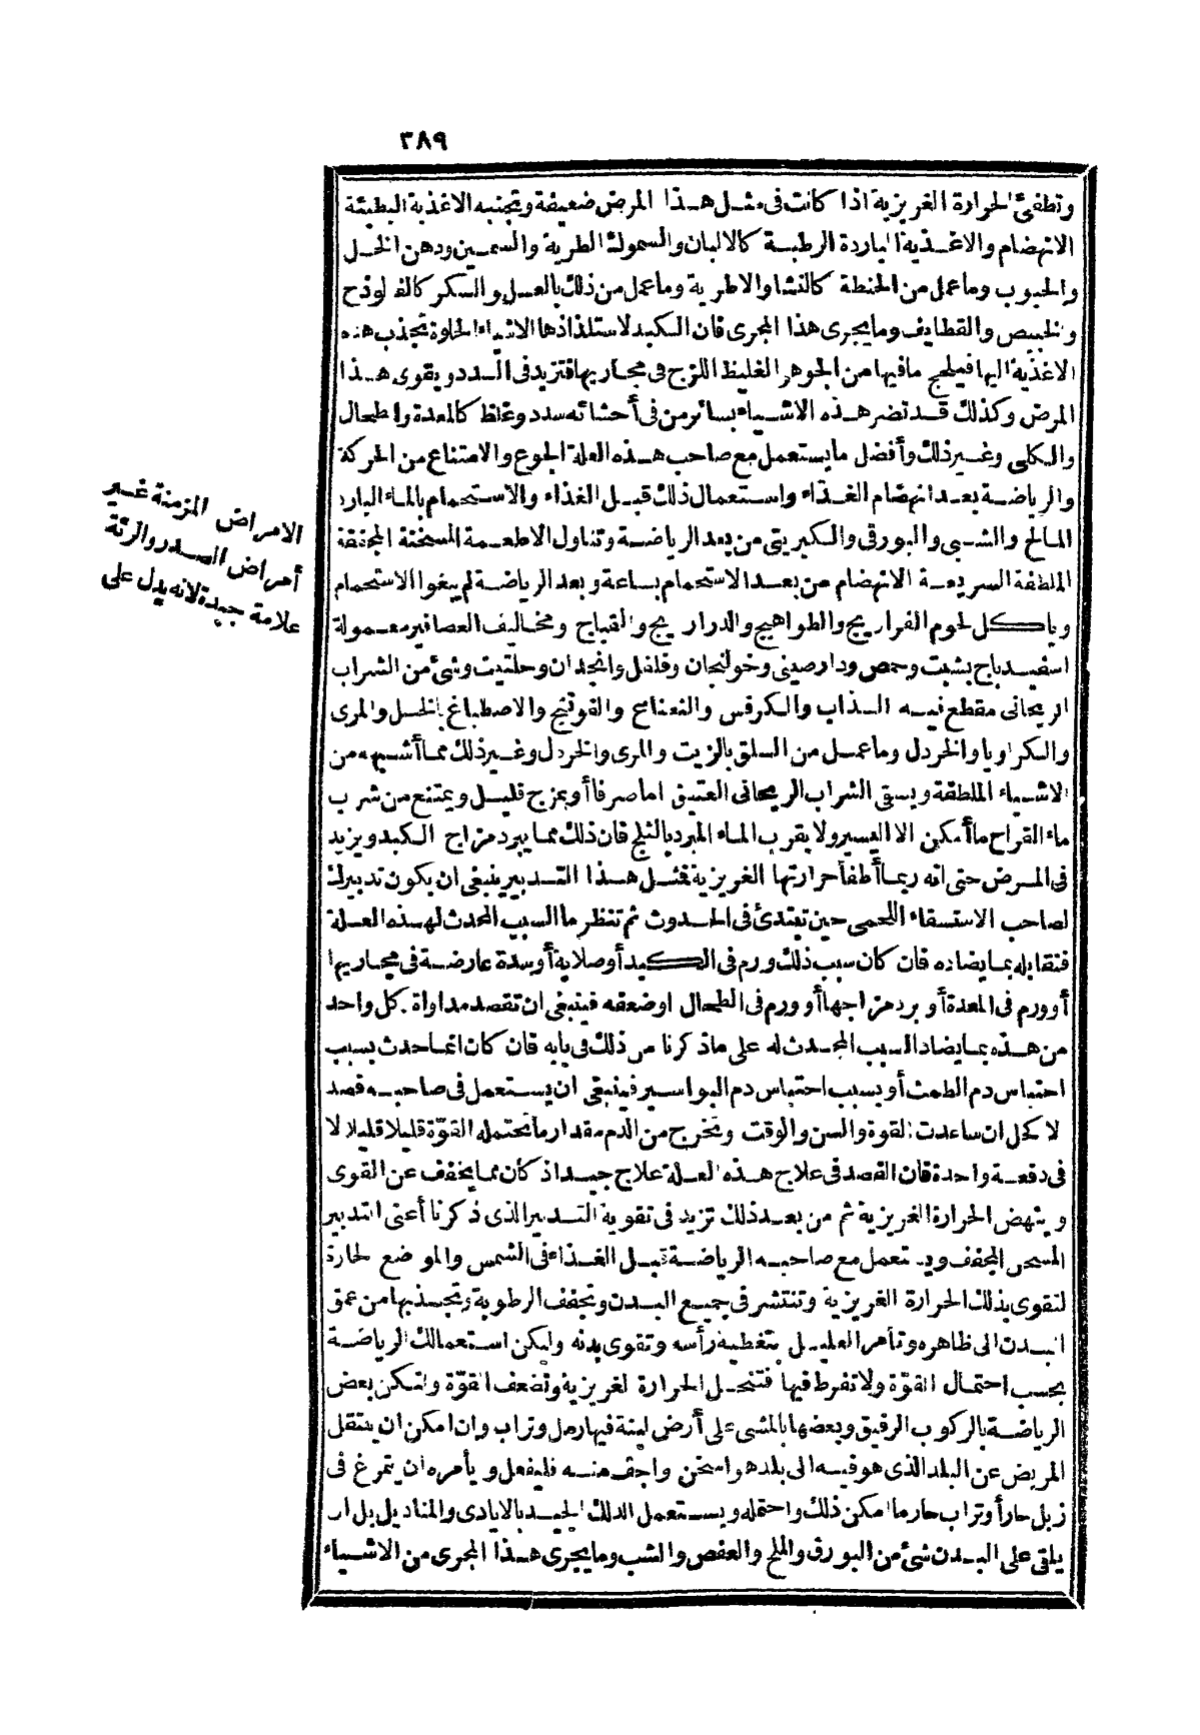 ٣٨٩
وتطفئ الحرارة الغريزية اذا كانت فى مثل هذا المرض ضعيفة وتجنبه الاغذية البطيئة
الانهضام والاغذية الباردة الرطبة كالالبان والسموك الطرية والسمين ودهن الخل
والحبوب وماعمل من الحنطة كالنشا والاطرية وماعمل من ذلك بالعسل والسكر كالفالوذج
والخبيص والقطايف ومايجرى هذا المجرى فان الكبد لاستلذاذها الاشياء الحلوة تجذب هذه
الاغذية اليها فيلحج مافيها من الجوهر الغليظ اللزج فى مجاريها فتزيد فى السدد ويقوى هذا
المرض وكذلك قد تضر هذه الاشياء بسائر من فى أحشائه سدد وغلظ كالمعدة والطحال
والكلى وغير ذلك وأفضل مايستعمل مع صاحب هذه العلة الجوع والامتناع من الحركة
والرياضة بعد انهضام الغذاء واستعمال ذلك قبل الغذاء والاستحمام بالماء البارد
المالح والشبى والبورقى والكبريتى من بعد الرياضة وتناول الاطعمة المسخنة المجففة
الملطفة السريعة الانهضام من بعد الاستحمام بساعة وبعد الرياضة لم يبغوا الاستحمام
وياكل لحوم الفراريج والطواهيج والدراريج والقباج ومخاليف العصافير معمولة
اسفيدباج بشبت وحمص ودارصينى وخولنجان وفلفل وانجدان وحلتيت وشئ من الشراب
الريحانى مقطع فيه السذاب والكرفس والنعناع والفوتنج والاصطباغ بالخل والمرى
والكراويا والخردل وماعمل من السلق بالزيت والمرى والخردل وغير ذلك مما أشبهه من
الاشياء الملطفة ويسقى الشراب الريحانى العتيق اما صرفا أو بمزج قليل ويمتنع من شرب
ماء القراح ما أمكن الا اليسير ولا يقرب الماء المبرد بالثلج فان ذلك مما يبرد مزاج الكبد ويزيد
فى المرض حتى انه ربما أطفأ حرارتها الغريزية فمثل هذا التدبير ينبغى ان يكون تدبيرك
لصاحب الاستسقاء اللحمى حين تبتدئ فى الحدوث ثم تنظر ما السبب المحدث لهذه العلة
فتقابله بما يضاده فان كان سبب ذلك ورم فى الكبد أو صلابة أو سدة عارضة فى مجاريها
أو ورم فى المعدة أو برد مزاجها أو ورم فى الطحال او ضعفه فينبغى ان تقصد مداواة كل واحد
من هذه بما يضاد السبب المحدث له على ماذكرنا من ذلك فى بابه فان كان انما حدث بسبب
احتباس دم الطمث أو بسبب احتباس دم البواسير فينبغى ان يستعمل فى صاحبه فصد
الاكحل ان ساعدت القوة والسن والوقت وتخرج من الدم مقدار ما تحتمله القوّة قليلا قليلا لا
فى دفعة واحدة فان الفصد فى علاج هذه العلة علاج جيد اذ كان مما يخفف عن القوى
وينهض الحرارة الغريزية ثم من بعد ذلك تزيد فى تقوية التدبير الذى ذكرنا أعنى التدبير
المسخن المجفف ويستعمل مع صاحبه الرياضة قبل الغذاء فى الشمس والمواضع الحارة
لتقوى بذلك الحرارة الغريزية وتنتشر فى جميع البدن وتجفف الرطوبة وتجذبها من عمق
البدن الى ظاهره وتأمر العليل بتغطية رأسه وتقوى بدنه وليكن استعمالك الرياضة
بحسب احتمال القوّة ولا تفرط فيها فتنحل الحرارة الغريزية وتضعف القوّة ولتكن بعض
الرياضة بالركوب الرفيق وبعضها بالمشى على أرض لينة فيها رمل وتراب وان امكن ان ينتقل
المريض عن البلد الذى هو فيه الى بلد هو اسخن واجف منه فليفعل ويأمره ان يتمرغ فى
زبل حار أو تراب حار ما امكن ذلك واحتمله ويستعمل الدلك الجيد بالايادى والمناديل بل ان
يلقى على البدن شئ من البورق والملح والعفص والشب ومايجرى هذا المجرى من الاشياء
الامراض المزمنة غير
أمراض الصدر والرئة
علامة جيدة لانه يدل على